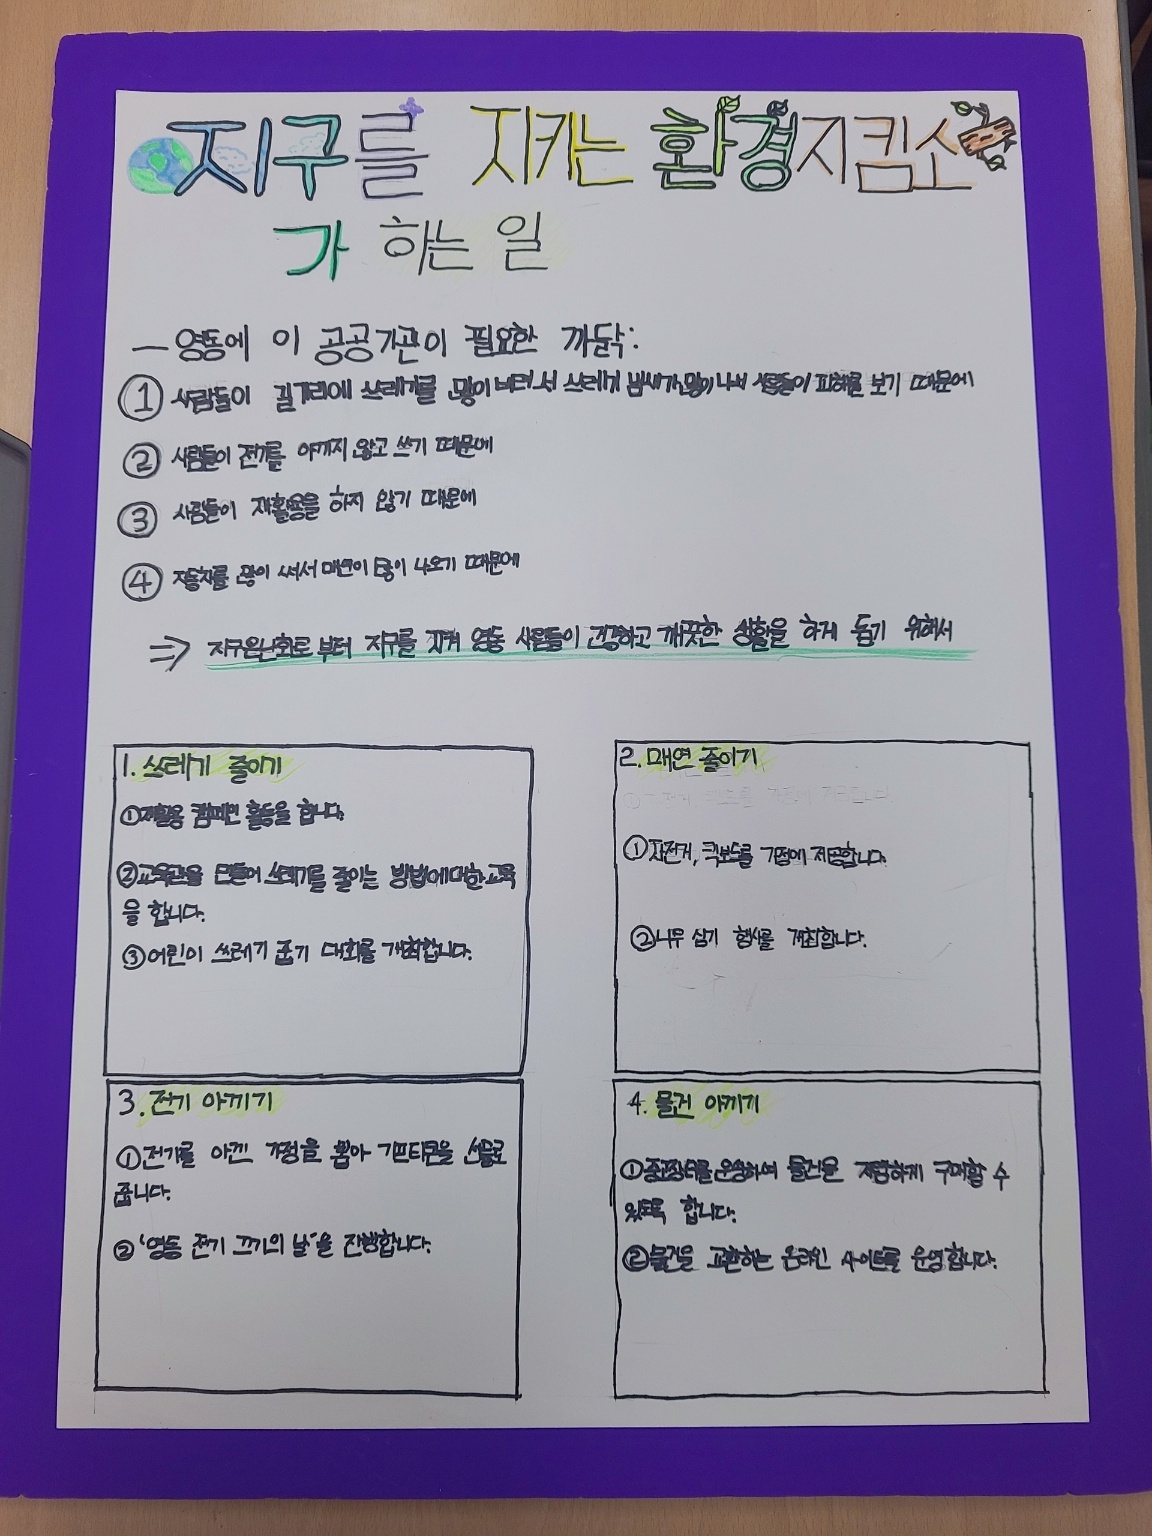 지구를 지키는 환경지킴소
가 하는 일
— 영동에 이 공공기관이 필요한 까닭:
① 사람들이 길거리에 쓰레기를 많이 버려서 쓰레기 냄새가 많이 나서 사람들이 피해를 보기 때문에
② 사람들이 전기를 아끼지 않고 쓰기 때문에
③ 사람들이 재활용을 하지 않기 때문에
④ 자동차를 많이 써서 매연이 많이 나오기 때문에
⇒ 지구온난화로 부터 지구를 지켜 영동 사람들이 건강하고 깨끗한 생활을 하게 돕기 위해서
1. 쓰레기 줄이기
① 재활용 캠페인 활동을 합니다.
② 교육관을 만들어 쓰레기를 줄이는 방법에 대한 교육
을 합니다.
③ 어린이 쓰레기 줍기 대회를 개최합니다.
2. 매연 줄이기
① 자전거, 킥보드를 가정에 제공합니다.
② 나무 심기 행사를 개최합니다.
3. 전기 아끼기
① 전기를 아낀 가정을 뽑아 기프티콘을 선물로
줍니다.
② '영동 전기 끄기의 날'을 진행합니다.
4. 물건 아끼기
① 중고장터를 운영하여 물건을 저렴하게 구매할 수
있도록 합니다.
② 물건을 교환하는 온라인 사이트를 운영합니다.